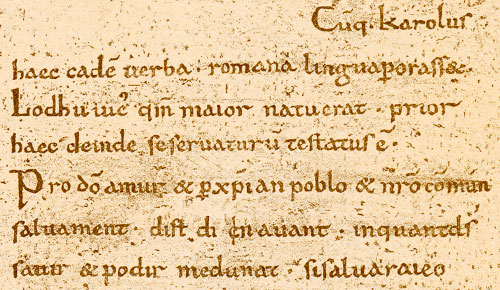 Cūq. karolus
haec eadē uerba · romana linguaꝑorasset·
Lodhuuicˢ qm̄ maior natuerat · prior
haec deinde seseruaturū testatusē·
Pro dō amur & pxp̄ian poblo & nr̄o cōmun
saluament · dist di en auant · inquantds̄
sauir & podir medunat · sisaluaraieo